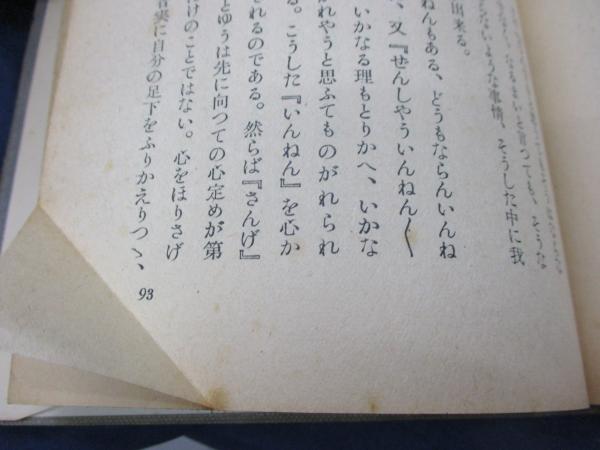 なるまいと言つても、そうな
ないような事情、そうした中に我
出来る。
ねんもある、どうもならんいんね
、又『ぜんしやういんねん〱
いかなる理もとりかへ、いかな
れやうと思ふてものがれられ
る。こうした『いんねん』を心か
されるのである。然らば『さんげ』
とゆうは先に向つての心定めが第
けのことではない。心をほりさげ
実に自分の足下をふりかえりつゝ、
93